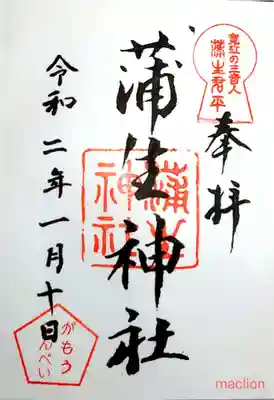 寛政の三奇人
蒲生君平
奉拝
蒲生神社
蒲生
神社
令和二年一月十日
がもう
くんぺい
maclion